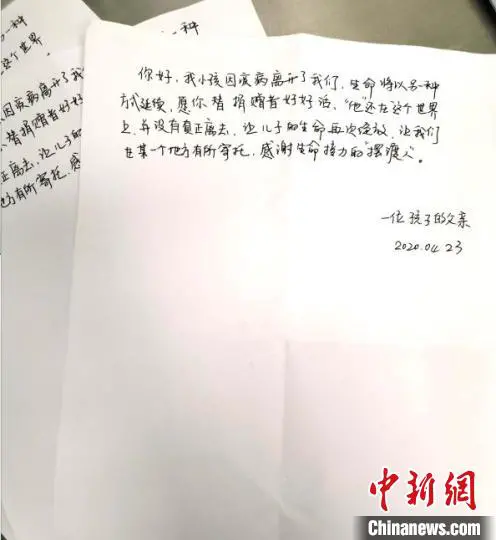 你好，我小孩因疾病离开了我们，生命将以另一种
方式延续，愿你替捐赠者好好活，“他”还在这个世界
上，并没有真正离去，让儿子的生命再次绽放，让我们
在某一个地方有所寄托，感谢生命接力的“摆渡人”。
一位孩子的父亲
2020.04.23
另一种
这个世界
因疾病离开了我
替捐赠者好好
正离去，让儿子的
地方有所寄托，感
中新网
Chinanews.com